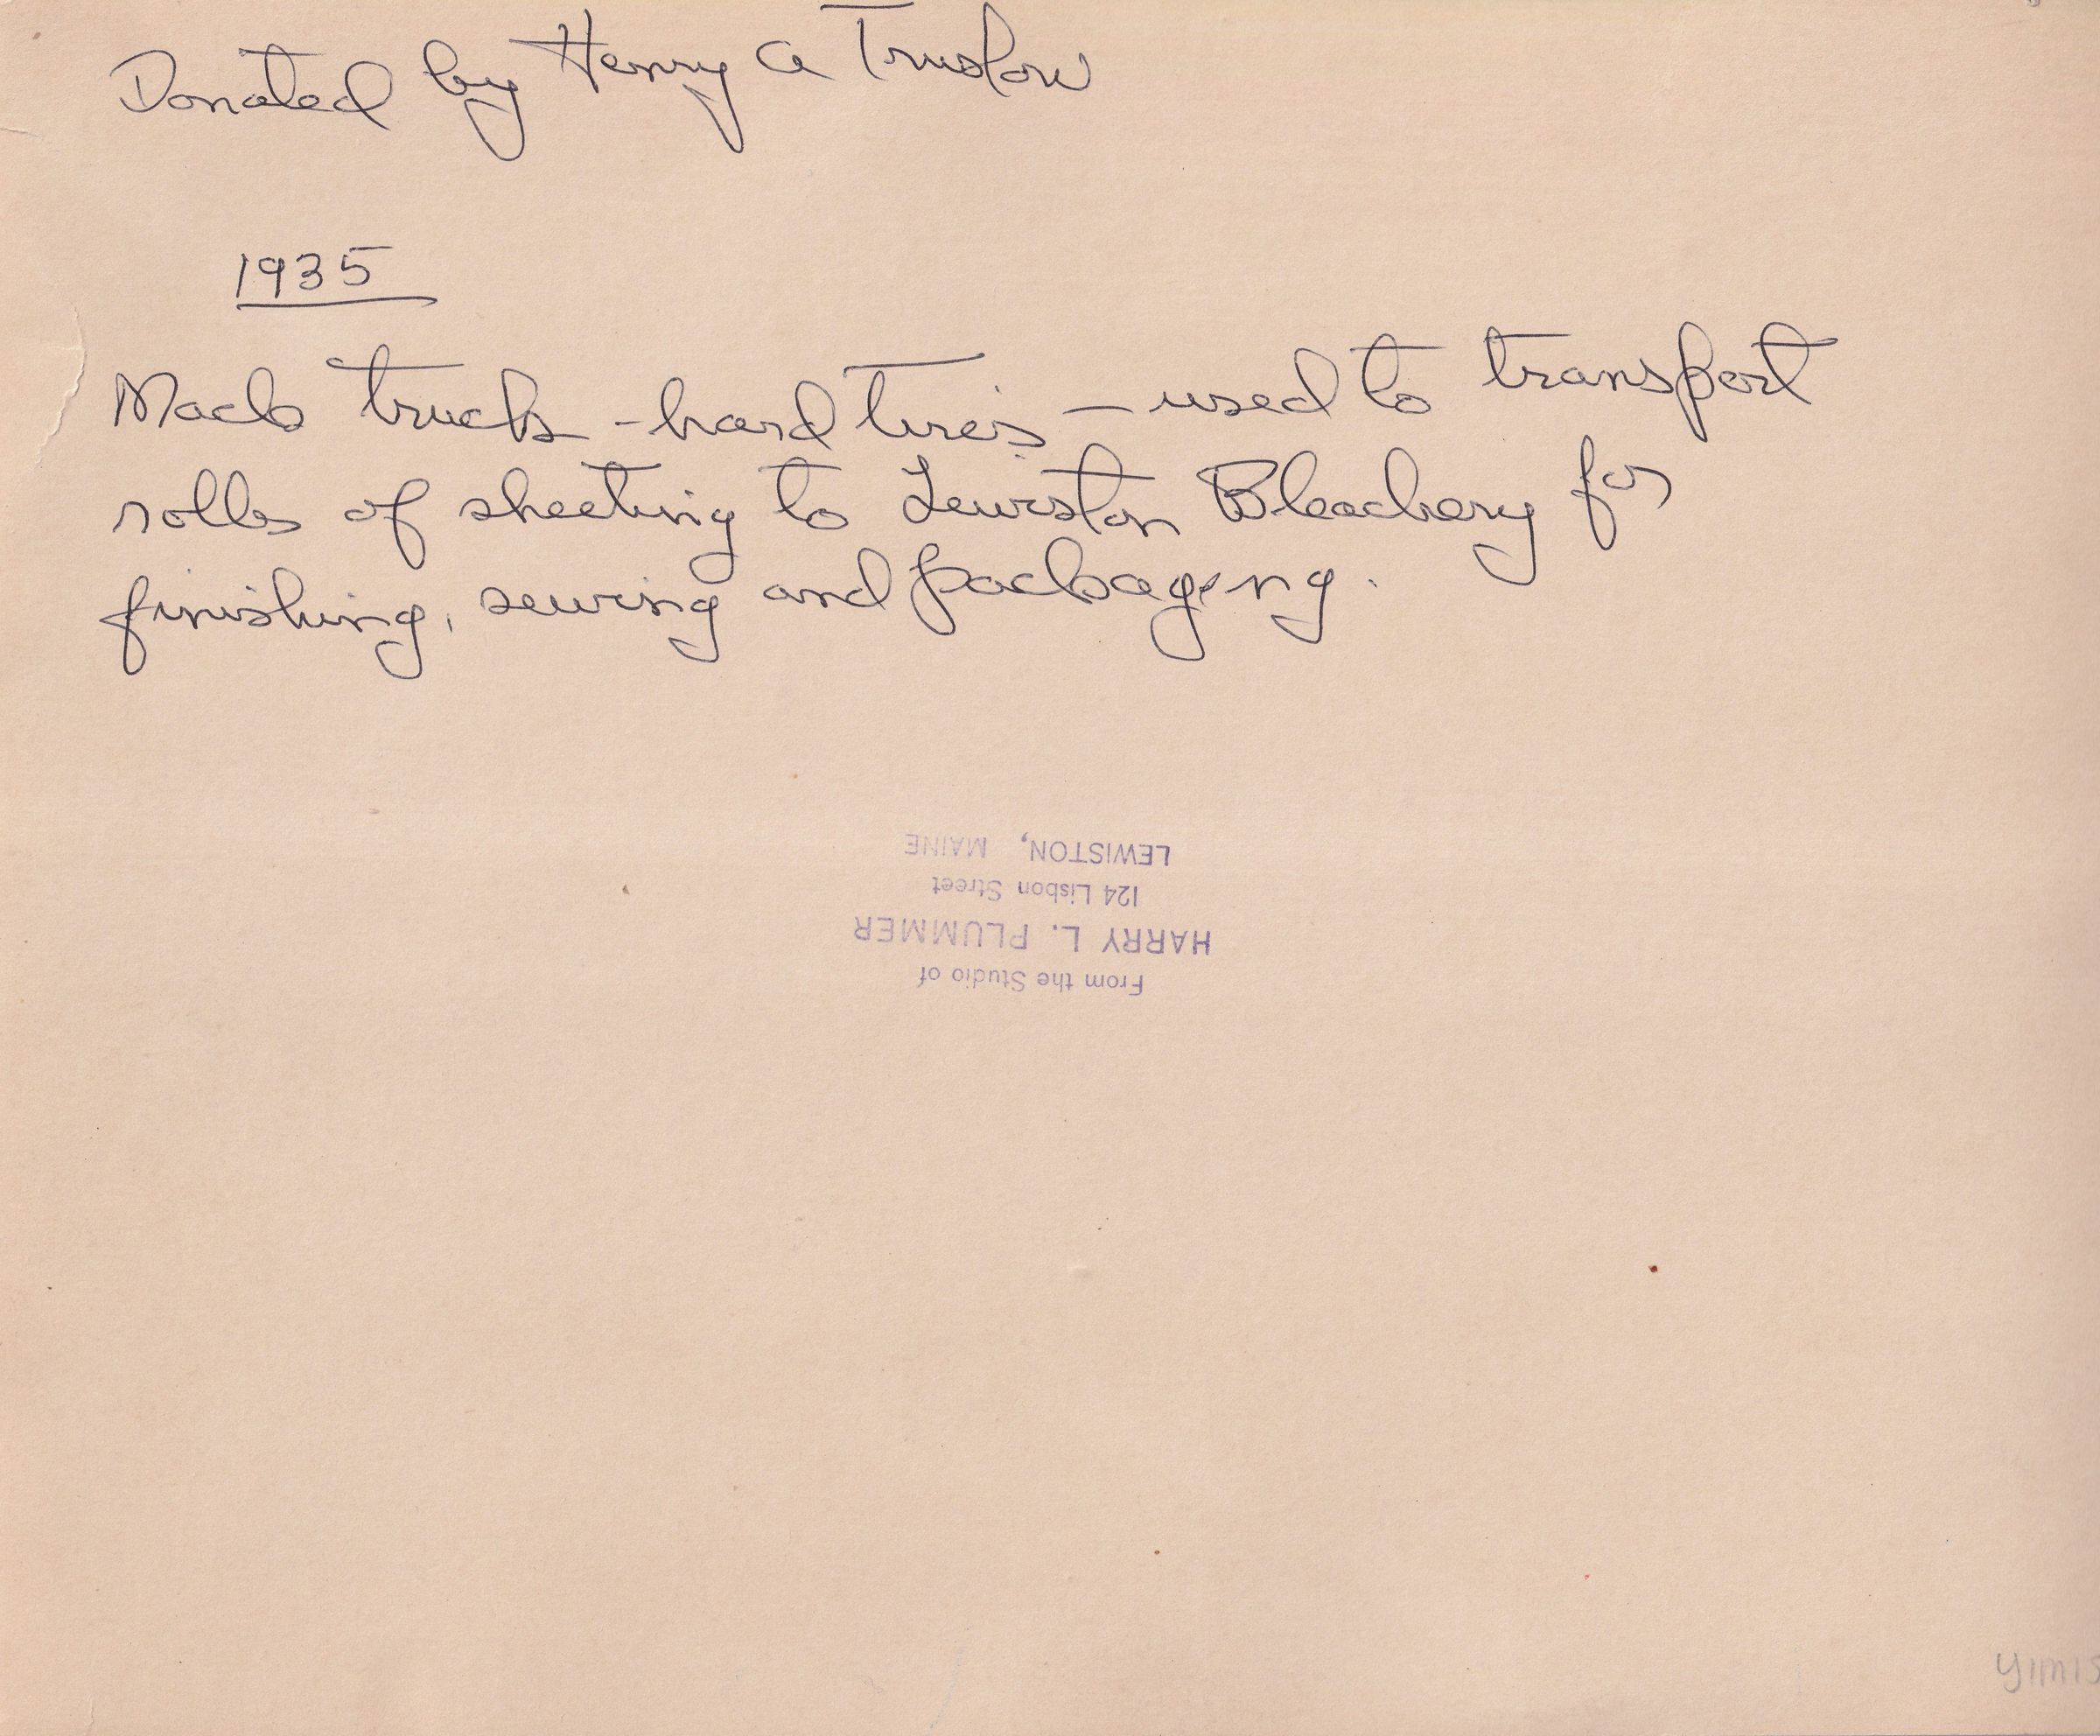 Donated by Henry A Truslow
1935
Mack truck - hard tires - used to transport
rolls of sheeting to Lewiston Bleachery for
finishing, sewing and packaging.
From the Studio of
HARRY L. PLUMMER
124 Lisbon Street
LEWISTON, MAINE